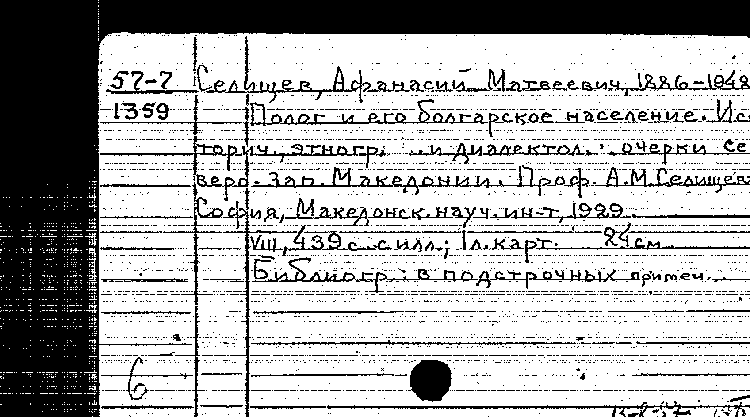 57-7 Селищев, Афанасий Матвеевич, 1886-1948
1359 Полог и его болгарское население. Ис
торич., этногр. и диалектол. очерки се
веро-зап. Македонии. Проф. А.М.Селищев
София, Македонск. науч. ин-т, 1929.
VIII, 439 с. с илл.; 1 л. карт. 24 см
Библиогр.: в подстрочных примеч.
6